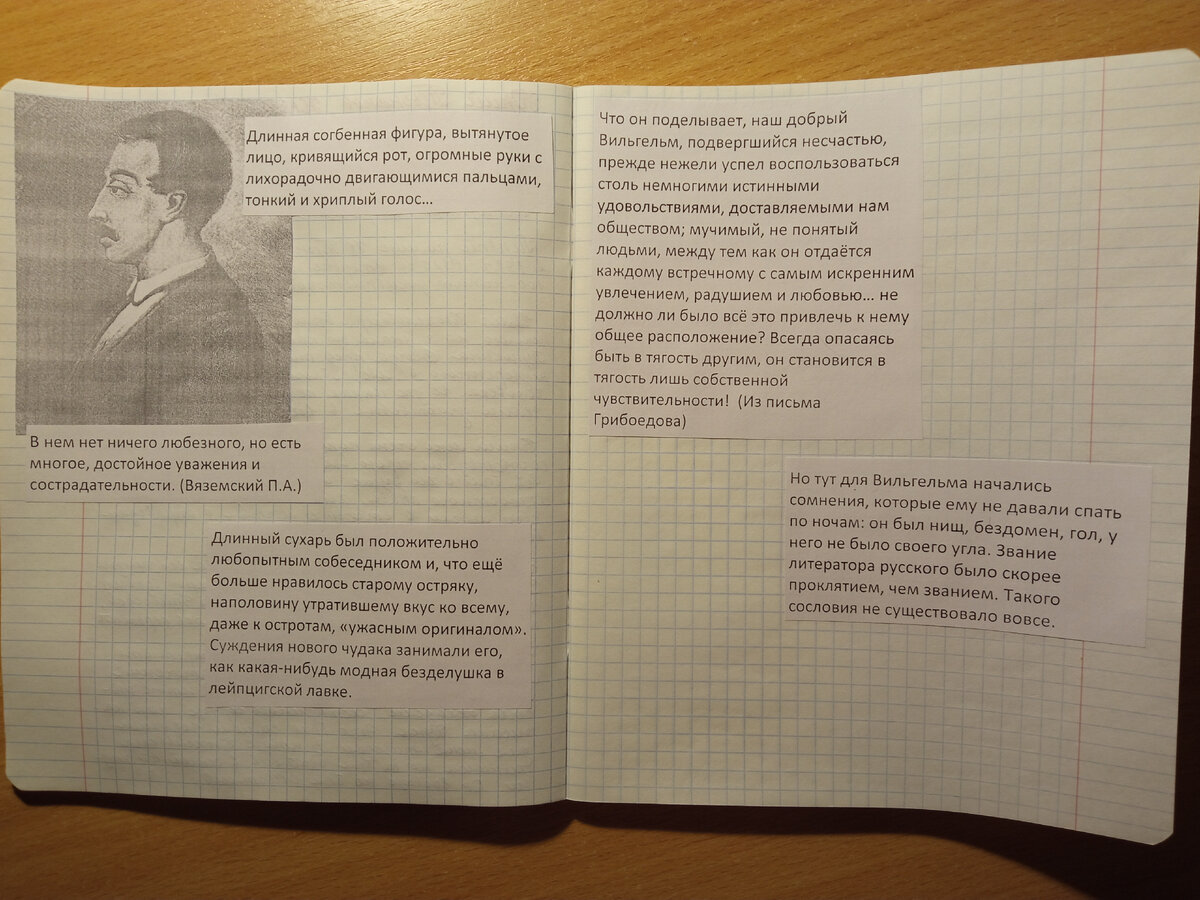 Длинная согбенная фигура, вытянутое
лицо, кривящийся рот, огромные руки с
лихорадочно двигающимися пальцами,
тонкий и хриплый голос…
В нем нет ничего любезного, но есть
многое, достойное уважения и
сострадательности. (Вяземский П.А.)
Длинный сухарь был положительно
любопытным собеседником и, что ещё
больше нравилось старому остряку,
наполовину утратившему вкус ко всему,
даже к остротам, «ужасным оригиналом».
Суждения нового чудака занимали его,
как какая-нибудь модная безделушка в
лейпцигской лавке.
Что он поделывает, наш добрый
Вильгельм, подвергшийся несчастью,
прежде нежели успел воспользоваться
столь немногими истинными
удовольствиями, доставляемыми нам
обществом; мучимый, не понятый
людьми, между тем как он отдаётся
каждому встречному с самым искренним
увлечением, радушием и любовью… не
должно ли было всё это привлечь к нему
общее расположение? Всегда опасаясь
быть в тягость другим, он становится в
тягость лишь собственной
чувствительности! (Из письма
Грибоедова)
Но тут для Вильгельма начались
сомнения, которые ему не давали спать
по ночам: он был нищ, бездомен, гол, у
него не было своего угла. Звание
литератора русского было скорее
проклятием, чем званием. Такого
сословия не существовало вовсе.